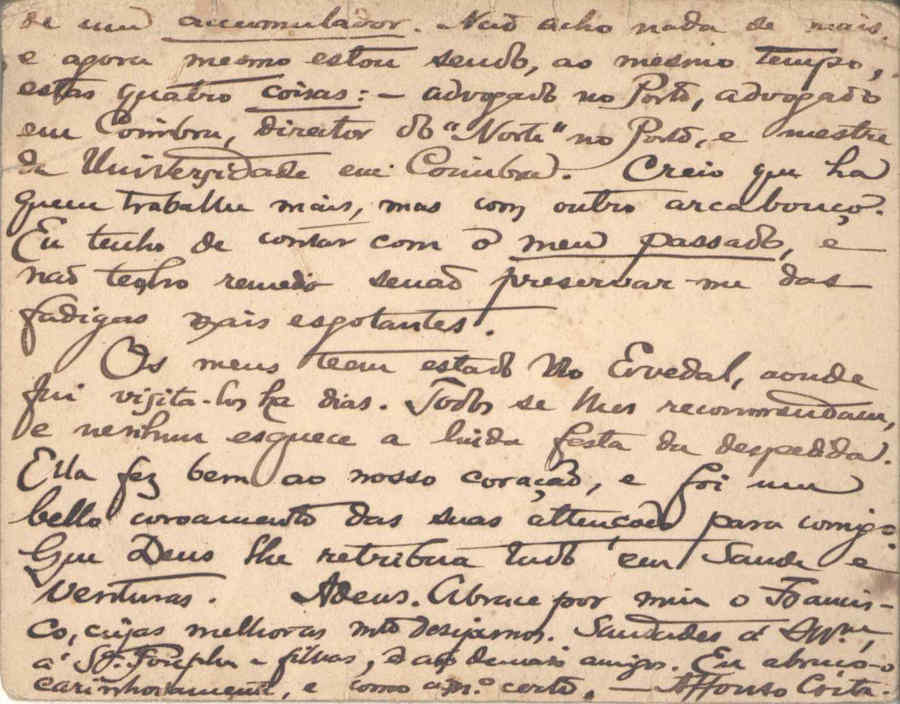 de um accumulador. Não acho nada de mais.
e agora mesmo estou sendo, ao mesmo tempo,
estas quatro coisas: — advogado no Porto, advogado
em Coimbra, director do "Norte" no Porto, e mestre
da Universidade em Coimbra. Creio que ha
quem trabalhe mais, mas com outro arcabouço.
Eu tenho de contar com o meu passado, e
não tenho remedio senão preservar-me das
fadigas mais esgotantes.
Os meus teem estado no Ervedal, aonde
fui visita-los ha dias. Todos se lhes recommendam,
e nenhum esquece a linda festa da despedida.
Ella fez bem ao nosso coração, e foi um
bello coroamento das suas attenções para comigo
Que Deus lhe retribua tudo em Saude e
Venturas. Adeus. Abrace por mim o Francis-
co, cujas melhoras mto desejamos. Saudades á
á Sr.ª e filhas, e aos demais amigos. Eu abraço-o
carinhosamente, e como am.º certo, — Affonso Costa.